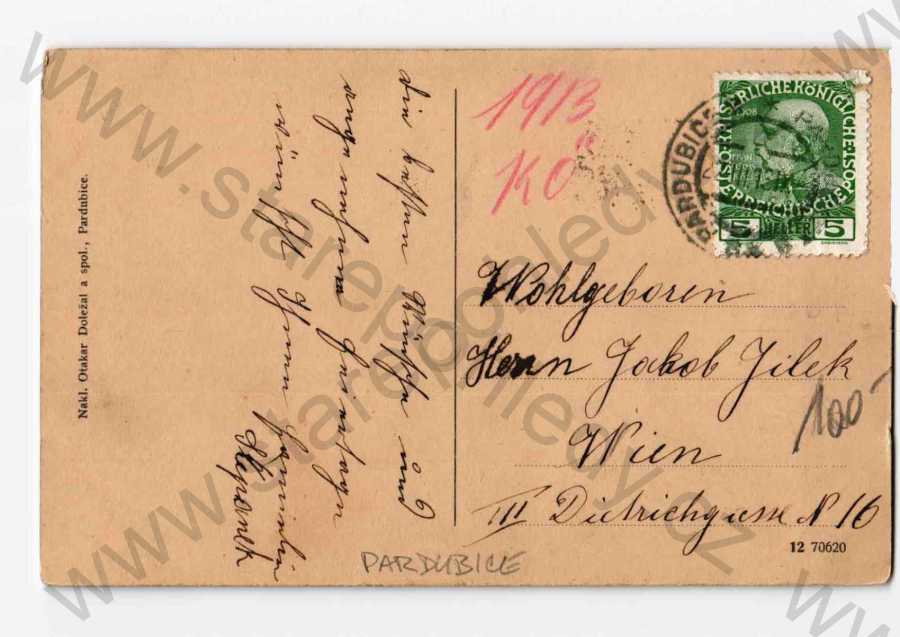 Nakl. Otakar Doležal a spol., Pardubice.
die besten Wünsche und
angenehme Feiertage
wünscht Ihnen Familie
1913
Kč
PARDUBICE
KAISERLICHE KÖNIGLICHE
ÖSTERREICHISCHE POST
5 HELLER 5
Wohlgeboren
Herrn Jakob Jilek
Wien
III Dietrichgasse N 16
100-
12 70620
PARDUBICE
www.starepohledy.cz